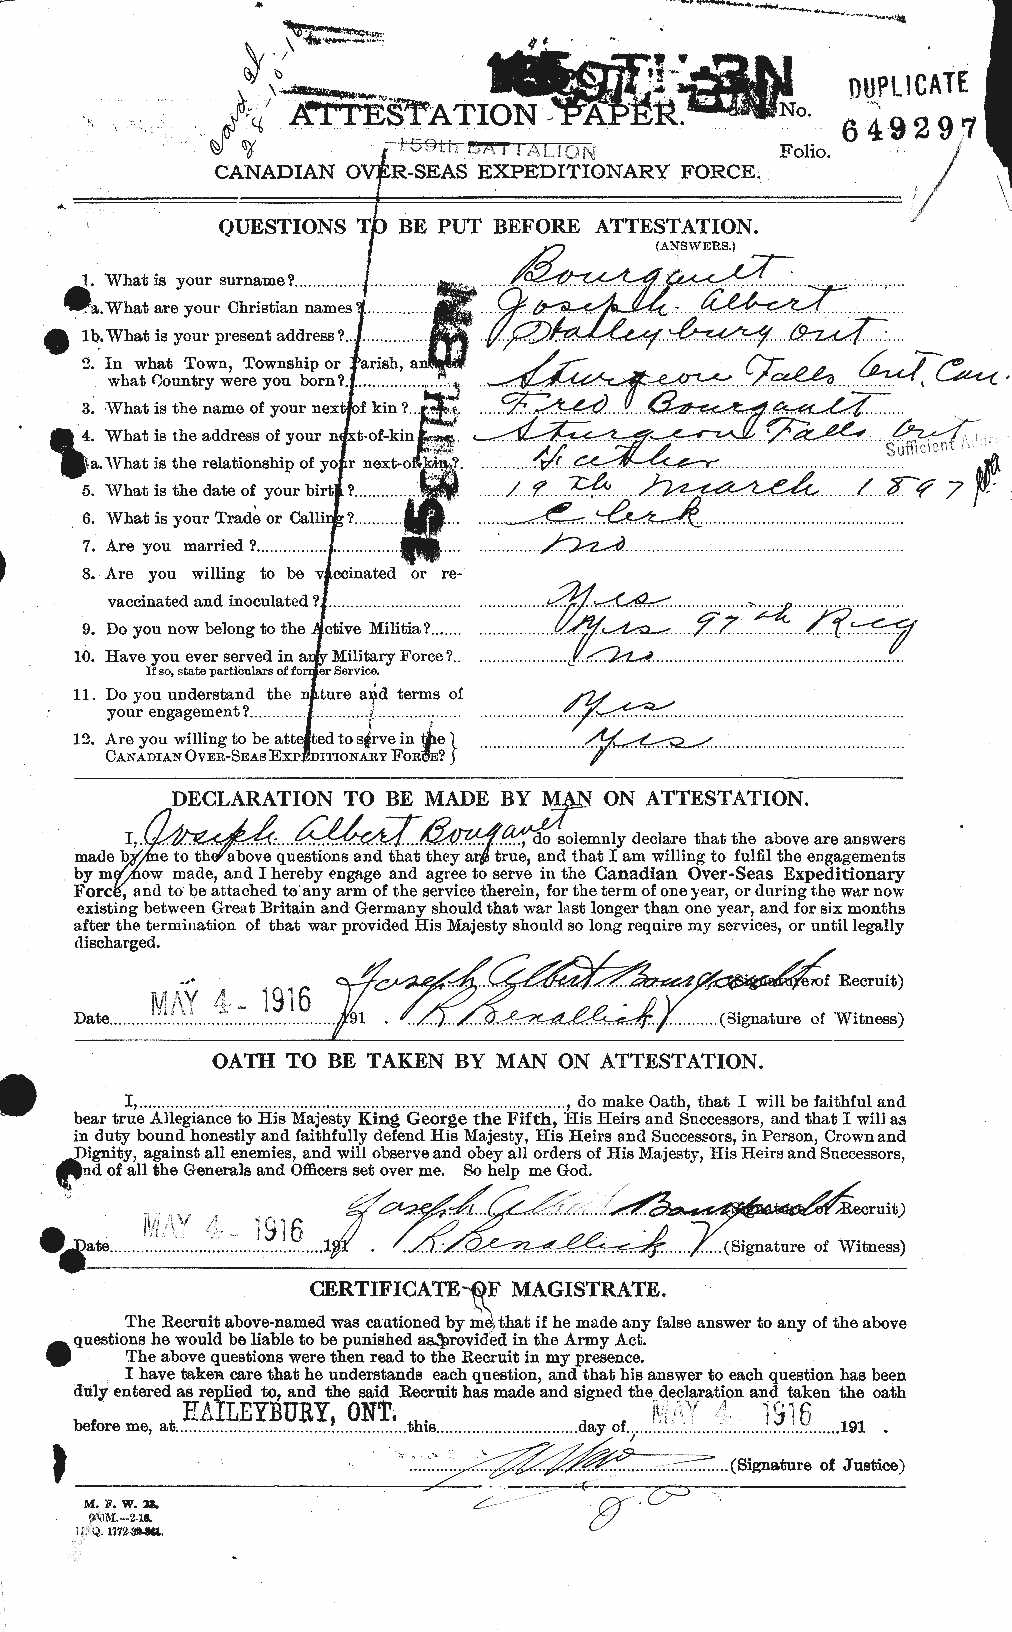 Card al
28-10-16
DUPLICATE
ATTESTATION PAPER. No. 649297
159th BATTALION
Folio.
CANADIAN OVER-SEAS EXPEDITIONARY FORCE.
QUESTIONS TO BE PUT BEFORE ATTESTATION.
(ANSWERS.)
1. What is your surname? Bourgault
a. What are your Christian names? Joseph. Albert
1b. What is your present address? Hailleybury Ont.
2. In what Town, Township or Parish, and
what Country were you born? Sturgeon Falls Ont. Can.
3. What is the name of your next of kin? Fred Bourgault
4. What is the address of your next-of-kin Sturgeon Falls Ont
Sufficient
a. What is the relationship of your next-of-kin? Father
5. What is the date of your birth? 19th March 1897
6. What is your Trade or Calling? Clerk
7. Are you married? No
8. Are you willing to be vaccinated or re-
vaccinated and inoculated? Yes
9. Do you now belong to the Active Militia? Yes 97th Reg
10. Have you ever served in any Military Force? No
If so, state particulars of former Service.
11. Do you understand the nature and terms of
your engagement? Yes
12. Are you willing to be attested to serve in the
CANADIAN OVER-SEAS EXPEDITIONARY FORCE? Yes
DECLARATION TO BE MADE BY MAN ON ATTESTATION.
I, Joseph Albert Bougault, do solemnly declare that the above are answers
made by me to the above questions and that they are true, and that I am willing to fulfil the engagements
by me now made, and I hereby engage and agree to serve in the Canadian Over-Seas Expeditionary
Force, and to be attached to any arm of the service therein, for the term of one year, or during the war now
existing between Great Britain and Germany should that war last longer than one year, and for six months
after the termination of that war provided His Majesty should so long require my services, or until legally
discharged.
Joseph Albert Bourgault (Signature of Recruit)
MAY 4- 1916
Date 191 . R Benallick (Signature of Witness)
OATH TO BE TAKEN BY MAN ON ATTESTATION.
I, , do make Oath, that I will be faithful and
bear true Allegiance to His Majesty King George the Fifth, His Heirs and Successors, and that I will as
in duty bound honestly and faithfully defend His Majesty, His Heirs and Successors, in Person, Crown and
Dignity, against all enemies, and will observe and obey all orders of His Majesty, His Heirs and Successors,
and of all the Generals and Officers set over me. So help me God.
Joseph Albert Bourgault (Signature of Recruit)
MAY 4- 1916
Date 191 . R Benallick (Signature of Witness)
CERTIFICATE OF MAGISTRATE.
The Recruit above-named was cautioned by me that if he made any false answer to any of the above
questions he would be liable to be punished as provided in the Army Act.
The above questions were then read to the Recruit in my presence.
I have taken care that he understands each question, and that his answer to each question has been
duly entered as replied to, and the said Recruit has made and signed the declaration and taken the oath
before me, at HAILEYBURY, ONT. this day of MAY 4 1916 191 .
(Signature of Justice)
M. F. W. 23.